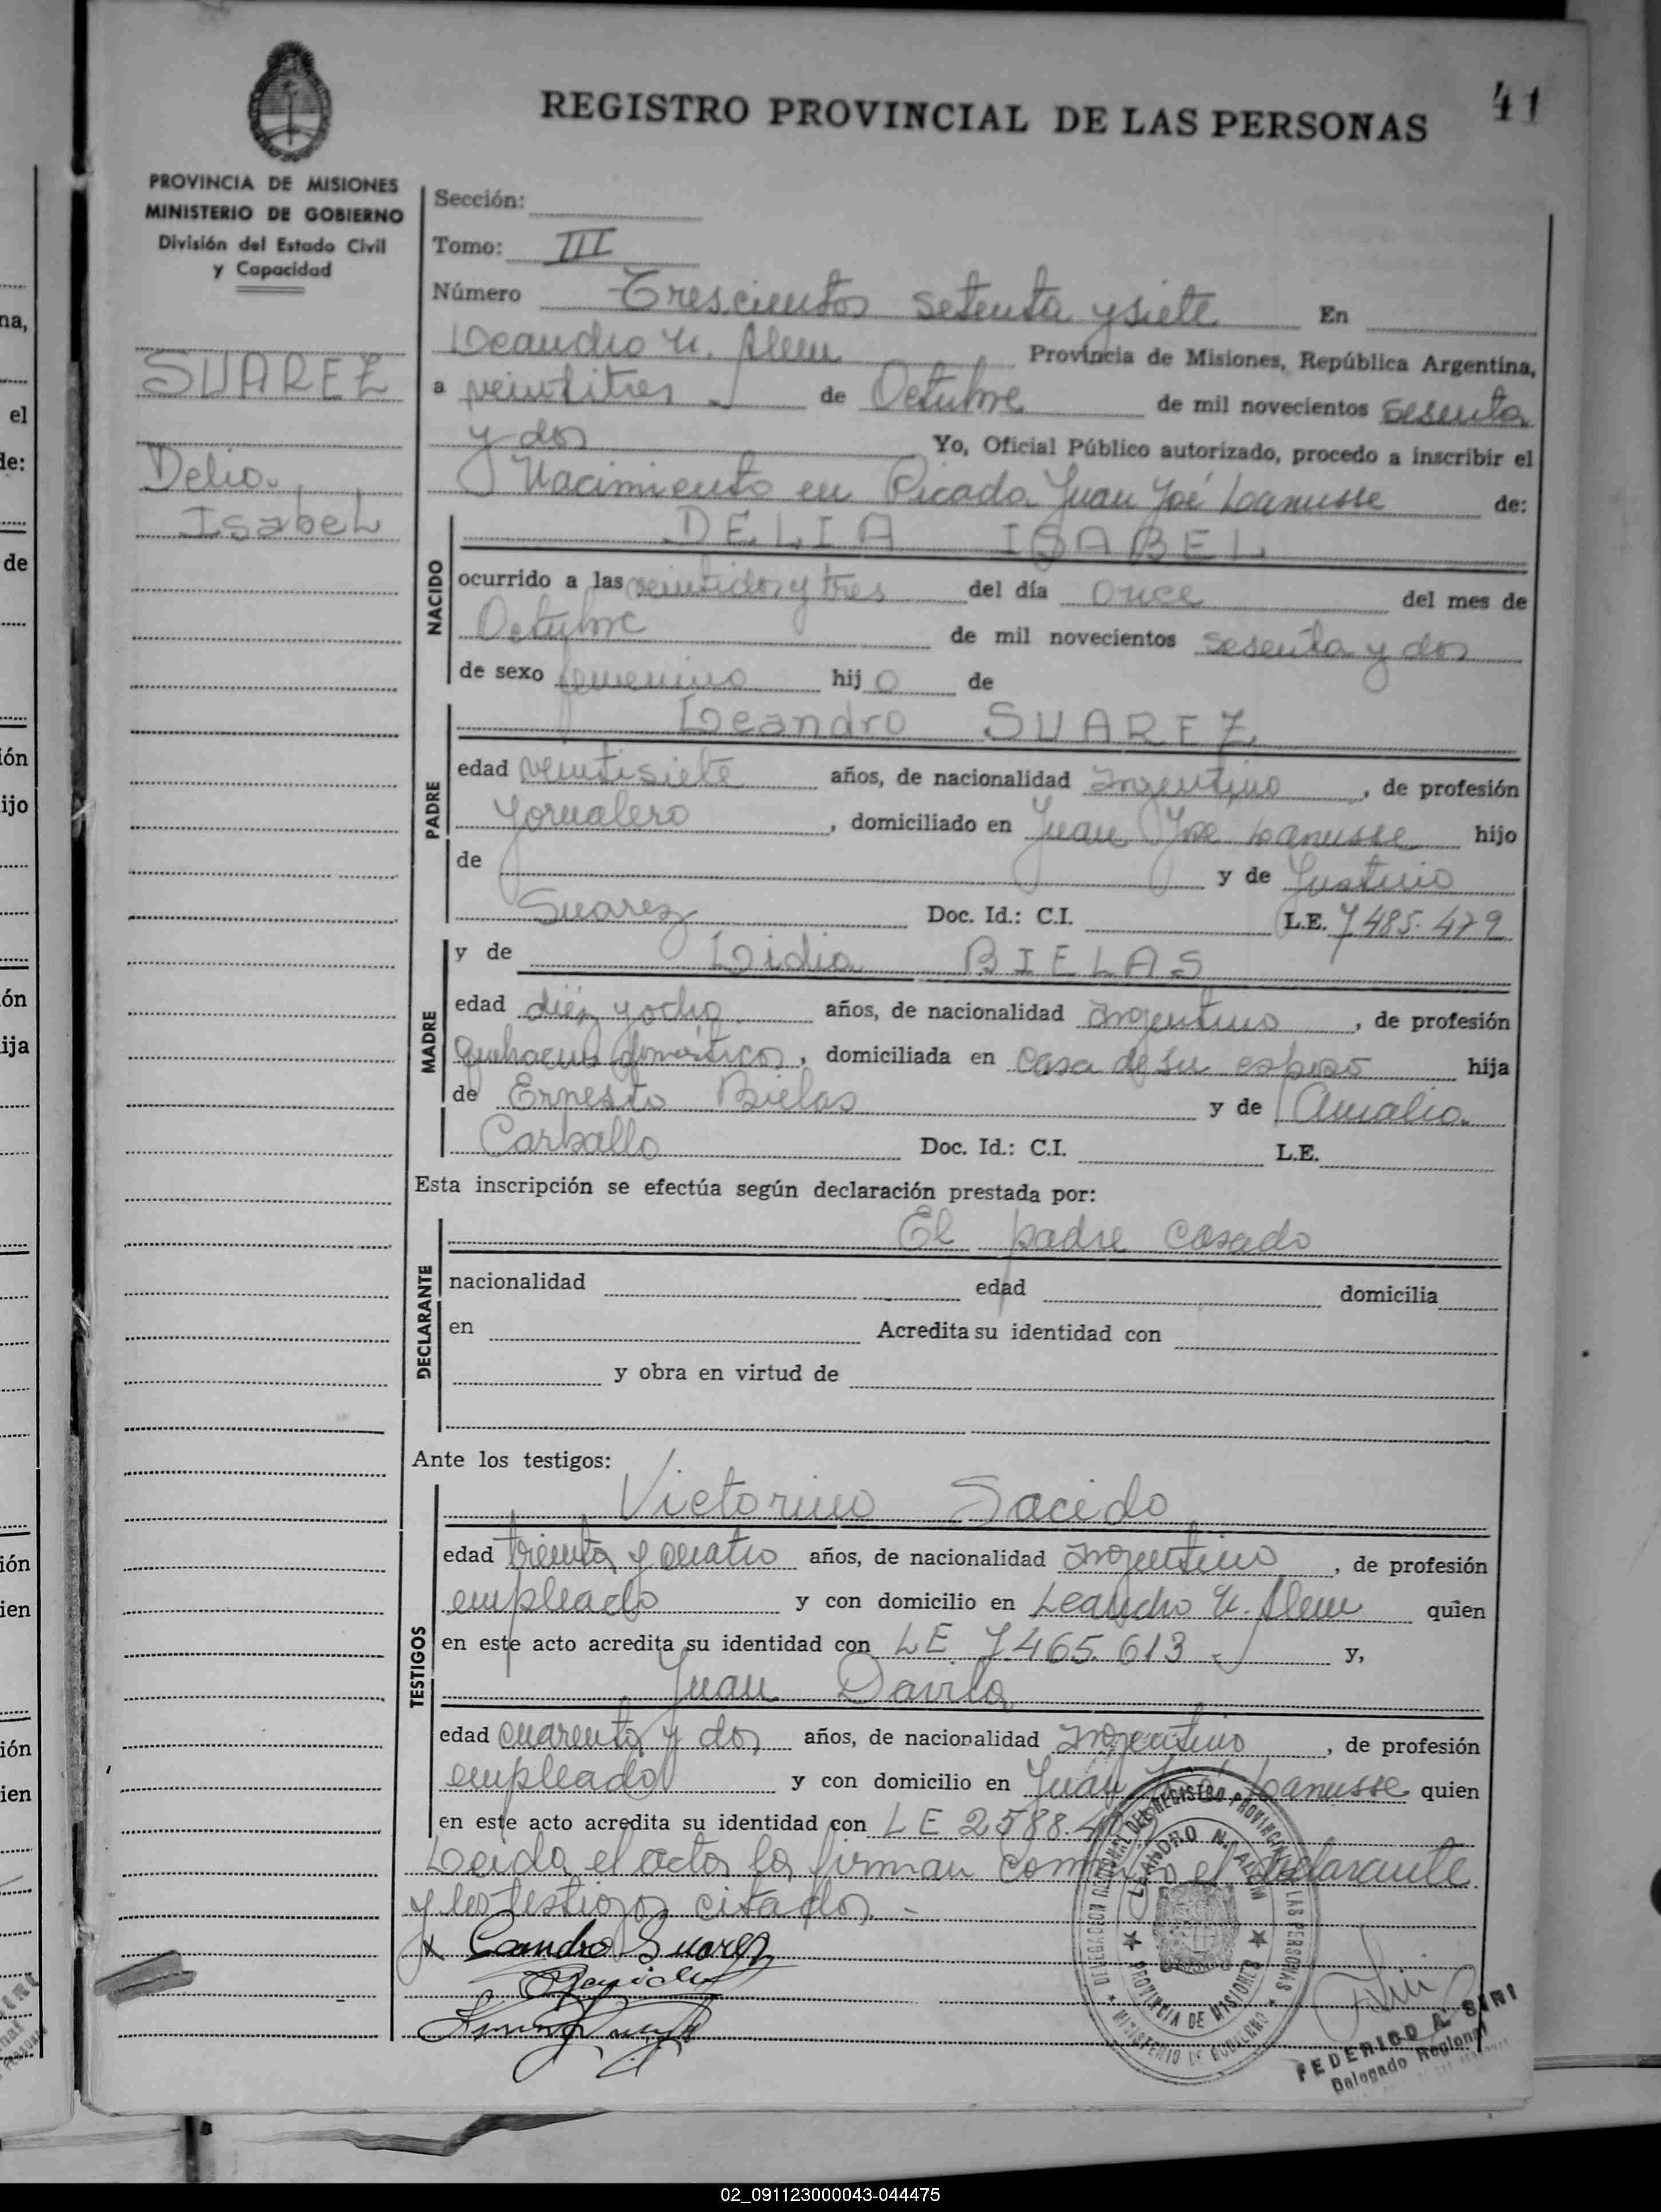 41
REGISTRO PROVINCIAL DE LAS PERSONAS
PROVINCIA DE MISIONES
MINISTERIO DE GOBIERNO
División del Estado Civil
y Capacidad
SUAREZ
Delia
Isabel
Sección:
Tomo: III
Número Trescientos setenta y siete En
Leandro N. Alem Provincia de Misiones, República Argentina,
a veintitres de Octubre de mil novecientos sesenta
y dos Yo, Oficial Público autorizado, procedo a inscribir el
Nacimiento en Picada Juan José Lanusse de:
NACIDO
DELIA ISABEL
ocurrido a las veintidos y tres del día once del mes de
Octubre de mil novecientos sesenta y dos
de sexo femenino hij a de
PADRE
Leandro SUAREZ
edad veintisiete años, de nacionalidad argentino, de profesión
Jornalero, domiciliado en Juan José Lanusse hijo
de y de Justino
Suarez Doc. Id.: C.I. L.E. 7485.479
MADRE
y de Lidia BIELAS
edad diez y ocho años, de nacionalidad argentina, de profesión
quehaceres domésticos, domiciliada en casa de su esposo hija
de Ernesto Bielas y de Amalia
Carballo Doc. Id.: C.I. L.E.
Esta inscripción se efectúa según declaración prestada por:
DECLARANTE
El padre casado
nacionalidad edad domicilia
en Acredita su identidad con
y obra en virtud de
Ante los testigos:
TESTIGOS
Victorino Sacido
edad treinta y cuatro años, de nacionalidad argentino, de profesión
empleado y con domicilio en Leandro N. Alem quien
en este acto acredita su identidad con LE 7.465.613 y,
Juan Davila
edad cuarenta y dos años, de nacionalidad argentino, de profesión
empleado y con domicilio en Juan José Lanusse quien
en este acto acredita su identidad con LE 2588.4
Leida el acta la firman conmigo el declarante
y los testigos citados.-
x Leandro Suarez
DELEGACION REGIONAL DEL REGISTRO PROVINCIAL DE LAS PERSONAS
LEANDRO N. ALEM
PROVINCIA DE MISIONES
MINISTERIO DE GOBIERNO
FEDERICO A. SIRI
Delegado Regional
02_091123000043-044475